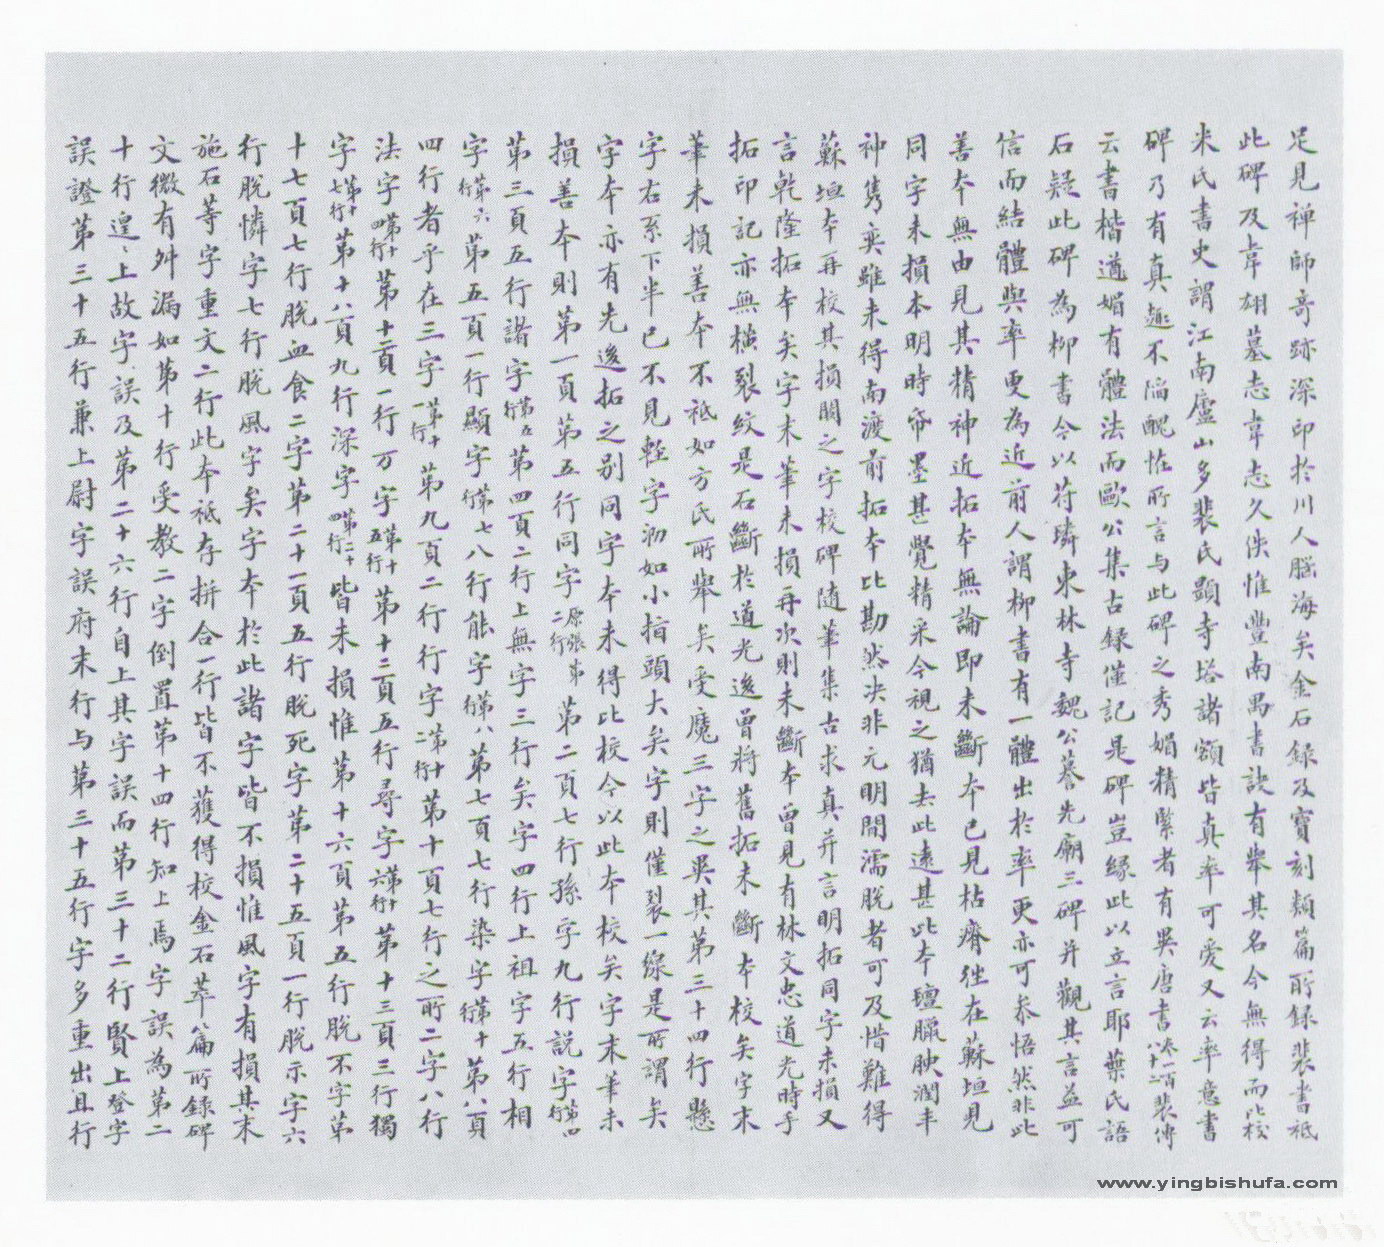 足見禅師奇跡深印於川人腦海矣金石録及寶刻類篇所録裴書袛
此碑及韋翃墓志韋志久佚惟豐南禺書訣有舉其名今無得而比校
米氏書史謂江南廬山多裴氏顕寺塔諸額皆真率可愛又云率意書
碑乃有真趣不陷醜恠所言与此碑之秀媚精緊者有異唐書卷一百八十二裴傳
云書楷遒媚有體法而歐公集古録僅記是碑豈縁此以立言耶葉氏語
石疑此碑為柳書今以苻璘東林寺魏公暮先廟三碑并觀其言益可
信而結體與率更為近前人謂柳書有一體出於率更亦可叅悟然非此
善本無由見其精神近拓本無論即未斷本已見枯瘠往在蘇垣見
同字未損本明時帋墨甚覺精采今視之猶去此遠甚此本壇臘腴潤丰
神雋奕雖未得南渡前拓本比勘然决非元明間濡脱者可及惜難得
蘇垣本再校其損闕之字校碑隨筆集古求真并言明拓同字未損又
言乾隆拓本矣字末筆未損再次則未斷本曾見有林文忠道光時手
拓印記亦無横裂紋是石斷於道光後曾將舊拓未斷本校矣字末
筆未損善本不袛如方氏所舉矣受魔三字之異其第三十四行懸
字右系下半已不見輊字泐如小指頭大矣字則僅裂一線是所謂矣
字本亦有先後拓之别同字本未得比校今以此本校矣字末筆未
損善本則第一頁第五行同字原張第二行第二頁七行孫字九行説字第四行
第三頁五行諸字第五行第四頁二行上無字三行矣字四行上祖字五行相
字第六行第五頁一行顯字第七行八行能字第八行第七頁七行染字第十行第八頁
四行者乎在三字第十一行第九頁二行行字第十二行第十頁七行之所二字八行
法字第十四行第十二頁一行万字第十五行第十二頁五行尋字第十六行第十三頁三行獨
字第十七行第十八頁九行深字第二十四行皆未損惟第十六頁第五行脱不字第
十七頁七行脱血食二字第二十一頁五行脱死字第二十五頁一行脱示字六
行脱憐字七行脱風字矣字本於此諸字皆不損惟風字有損其末
施石等字重文二行此本袛存拼合一行皆不獲得校金石萃篇所録碑
文微有舛漏如第十行受教二字倒置第十四行知上焉字誤為第二
十行遑〻上故字誤及第二十六行自上其字誤而第三十二行賢上登字
誤證第三十五行兼上尉字誤府末行与第三十五行字多重出且行
www.yingbishufa.com